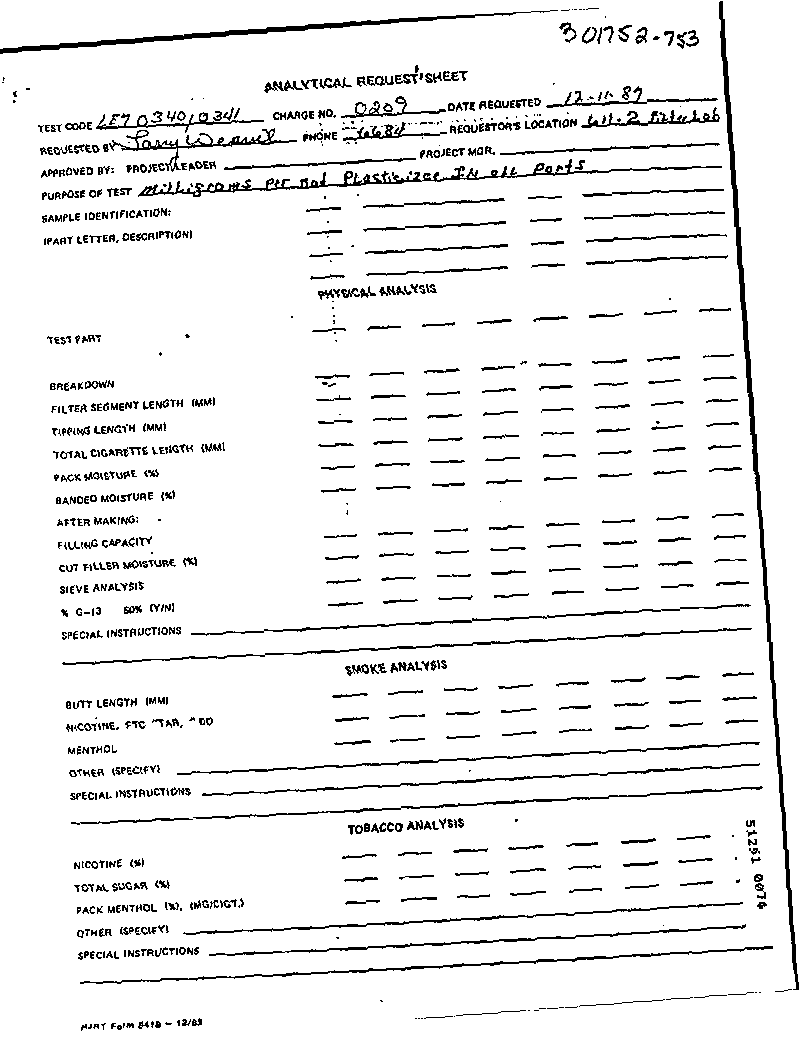 301752-753
ANALYTICAL REQUEST SHEET
TEST CODE LE7 0340, 0341 CHARGE NO. 0209 DATE REQUESTED 12-11-87
REQUESTED BY PHONE 6684 REQUESTOR'S LOCATION 611-2 Filter Lab
APPROVED BY: PROJECT LEADER PROJECT MGR.
PURPOSE OF TEST Milligrams Per Rod Plasticizer IN all Parts
SAMPLE IDENTIFICATION:
(PART LETTER, DESCRIPTION)
PHYSICAL ANALYSIS
TEST PART
BREAKDOWN
FILTER SEGMENT LENGTH (MM)
TIPPING LENGTH (MM)
TOTAL CIGARETTE LENGTH (MM)
PACK MOISTURE (%)
BANDED MOISTURE (%)
AFTER MAKING:
FILLING CAPACITY
CUT FILLER MOISTURE (%)
SIEVE ANALYSIS
% G-13 50% (Y/N)
SPECIAL INSTRUCTIONS
SMOKE ANALYSIS
BUTT LENGTH (MM)
NICOTINE, FTC "TAR," CO
MENTHOL
OTHER (SPECIFY)
SPECIAL INSTRUCTIONS
TOBACCO ANALYSIS
NICOTINE (%)
TOTAL SUGAR (%)
PACK MENTHOL (%), (MG/CIGT.)
OTHER (SPECIFY)
SPECIAL INSTRUCTIONS
51261 0074
RJRT Form 8418 - 12/83